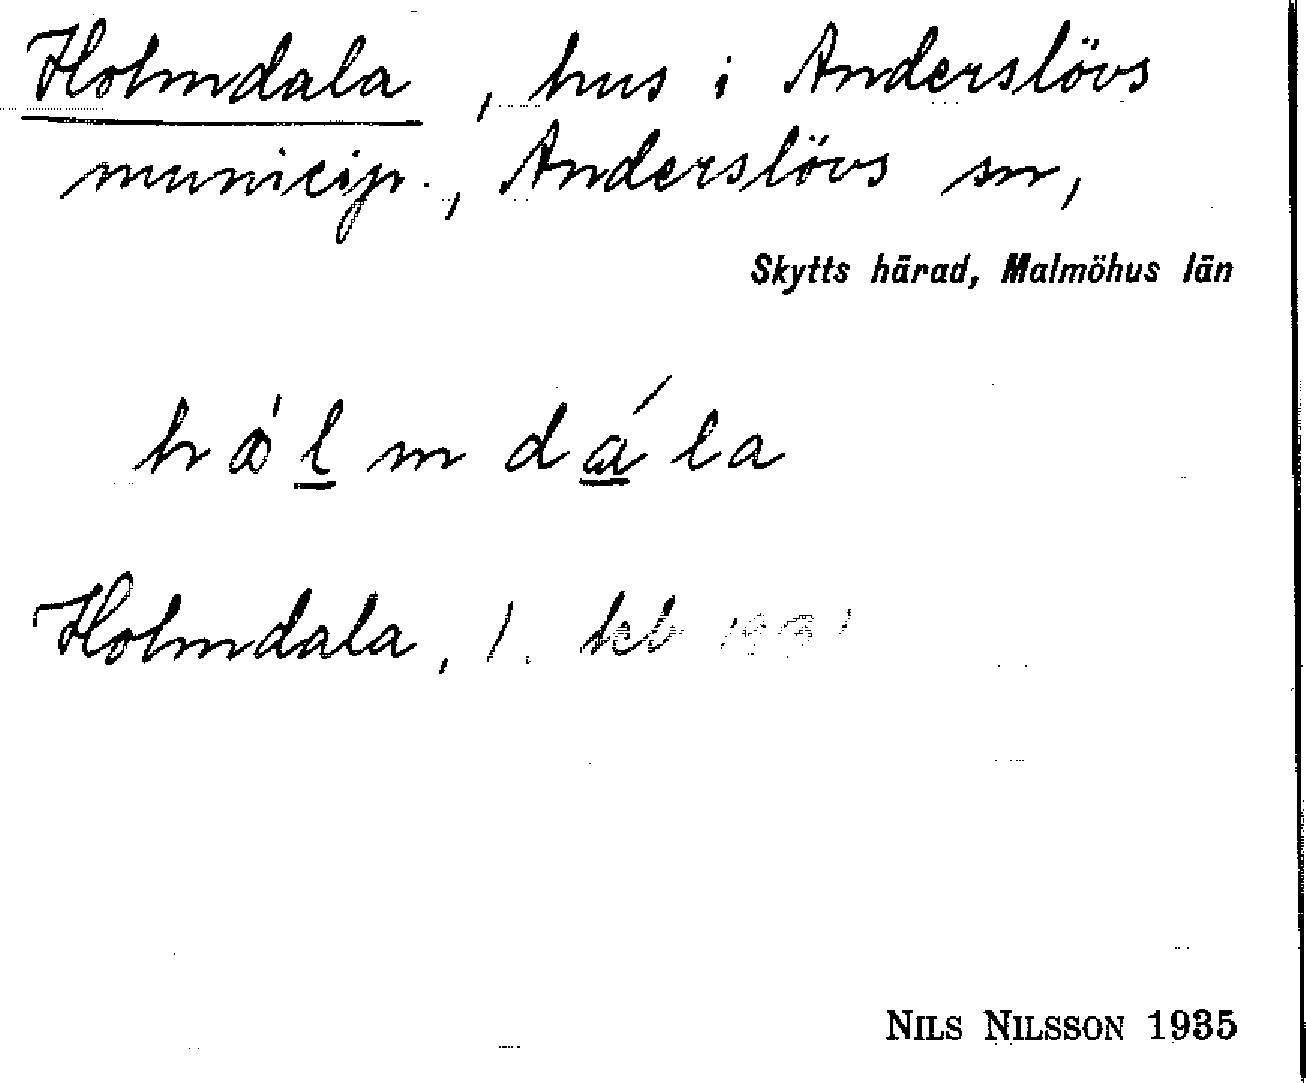 Holmdala, hus i Anderslövs
municip., Anderslövs sn,
Skytts härad, Malmöhus län
hå̀l̲mdá̲la
Holmdala, 1. kb 1931
NILS NILSSON 1935